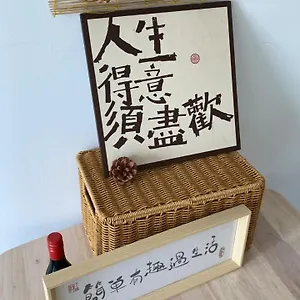 人生
得意
須盡歡
簡單有趣過生活